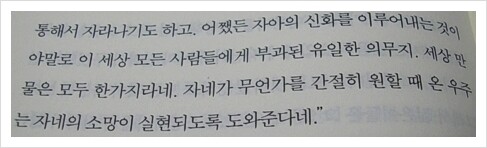 통해서 자라나기도 하고. 어쨌든 자아의 신화를 이루어내는 것이
야말로 이 세상 모든 사람들에게 부과된 유일한 의무지. 세상 만
물은 모두 한가지라네. 자네가 무언가를 간절히 원할 때 온 우주
는 자네의 소망이 실현되도록 도와준다네.”